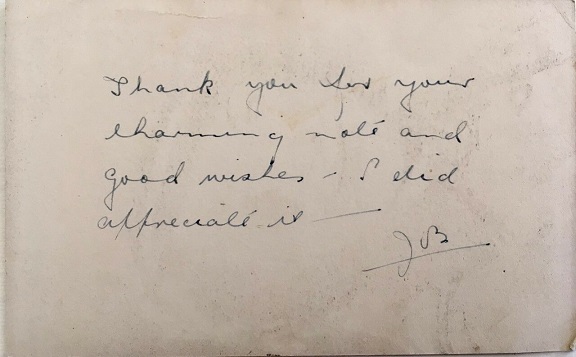 Thank you for your
charming note and
good wishes - I did
appreciate it —
JB